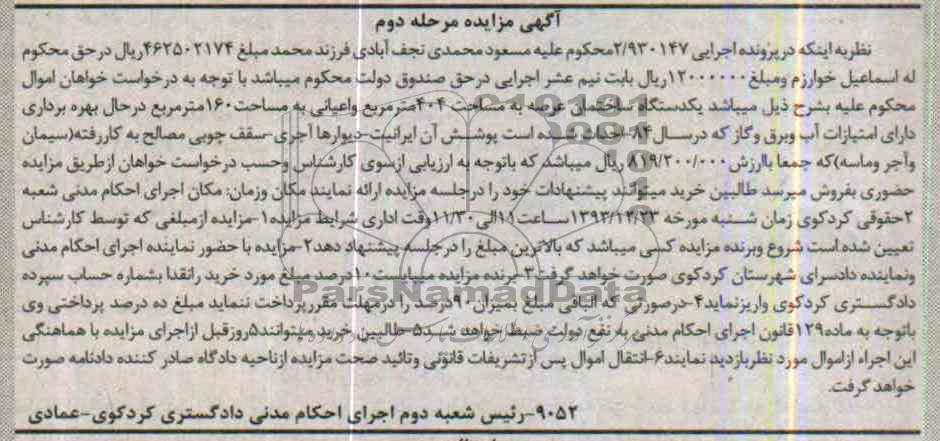 آگهی مزایده مرحله دوم
نظربه اینکه درپرونده اجرایی ۲/۹۳۰۱۴۷محکوم علیه مسعود محمدی نجف آبادی فرزند محمد مبلغ ۴۶۲۵۰۲۱۷۴ریال درحق محکوم
له اسماعیل خوارزم ومبلغ۱۲۰۰۰۰۰۰ریال بابت نیم عشر اجرایی درحق صندوق دولت محکوم میباشد با توجه به درخواست خواهان اموال
محکوم علیه بشرح ذیل میباشد یکدستگاه ساختمان عرصه به مساحت ۴۰۴مترمربع واعیانی به مساحت۱۶۰مترمربع درحال بهره برداری
دارای امتیازات آب وبرق وگاز که درسال۸۴-احداث شده است پوشش آن ایرانیت-دیوارها آجری-سقف چوبی مصالح به کاررفته(سیمان
وآجر وماسه)که جمعا باارزش ۸۱۹/۲۰۰/۰۰۰ ریال میباشد که باتوجه به ارزیابی ازسوی کارشناس وحسب درخواست خواهان ازطریق مزایده
حضوری بفروش میرسد طالبین خرید میتوانند پیشنهادات خود را درجلسه مزایده ارائه نمایند مکان وزمان: مکان اجرای احکام مدنی شعبه
۲حقوقی کردکوی زمان شنبه مورخه ۱۳۹۳/۱۲/۲۳ساعت۱۱الی۱۱/۳۰وقت اداری شرایط مزایده۱-مزایده ازمبلغی که توسط کارشناس
تعیین شده است شروع وبرنده مزایده کسی میباشد که بالاترین مبلغ را درجلسه پیشنهاد دهد۲-مزایده با حضور نماینده اجرای احکام مدنی
ونماینده دادسرای شهرستان کردکوی صورت خواهد گرفت۳-برنده مزایده میبایست۱۰درصد مبلغ مورد خرید رانقدا بشماره حساب سپرده
دادگستری کردکوی واریزنماید۴-درصورتی که الباقی مبلغ بمیزان۹۰درصد را درمهلت مقررپرداخت ننماید مبلغ ده درصد پرداختی وی
باتوجه به ماده۱۲۹قانون اجرای احکام مدنی به نفع دولت ضبط خواهد شد۵-طالبین خرید میتوانند۵روزقبل ازاجرای مزایده با هماهنگی
این اجراء ازاموال مورد نظربازدید نمایند۶-انتقال اموال پس ازتشریفات قانونی وتائید صحت مزایده ازناحیه دادگاه صادر کننده دادنامه صورت
خواهد گرفت.
۹۰۵۲-رئیس شعبه دوم اجرای احکام مدنی دادگستری کردکوی-عمادی
ParsNamadData